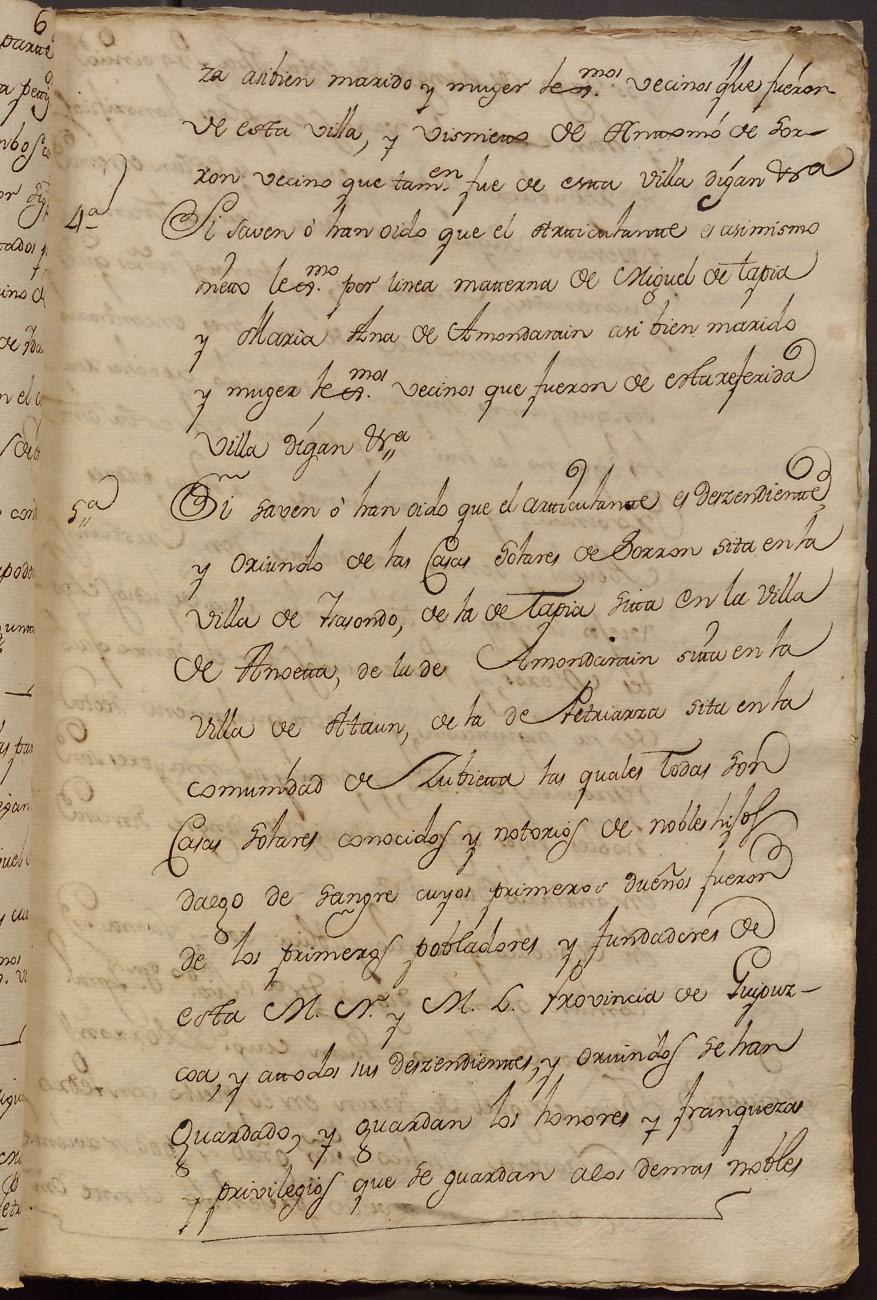 za asibien marido y muger lexmos. vecinos que fueron
de esta villa, y visnieto de Antonio de Sor-
ron vecino que tamen. fue de esta villa digan &ra
4a Si saven ò han oido que el Articulante es asimismo
nieto lexmo. por linea materna de Miguel de tapia
y Maria Ana de Amondarain asi bien marido
y muger lexmos. vecinos que fueron de esta referida
villa digan &ra
5a Si saven ò han oido que el articulante es deszendiente
y oriundo de las Casas Solares de Sorron sita en la
villa de Irasondo, de la de Tapia sita en la villa
de Anoetta, de la de Amondarain sita en la
villa de Ataun, de la de Petriarza sita en la
comunidad de Zubieta las quales todas son
Casas Solares conocidos y notorios de nobles hijos
dalgo de sangre cuyos primeros dueños fueron
de los primeros pobladores y fundadores de
esta M. N. y M. L. Provincia de Guipuz-
coa, y a todos sus deszendientes, y oriundos se han
guardado, y guardan los honores y franquezas
y privilegios que se guardan a los demas nobles